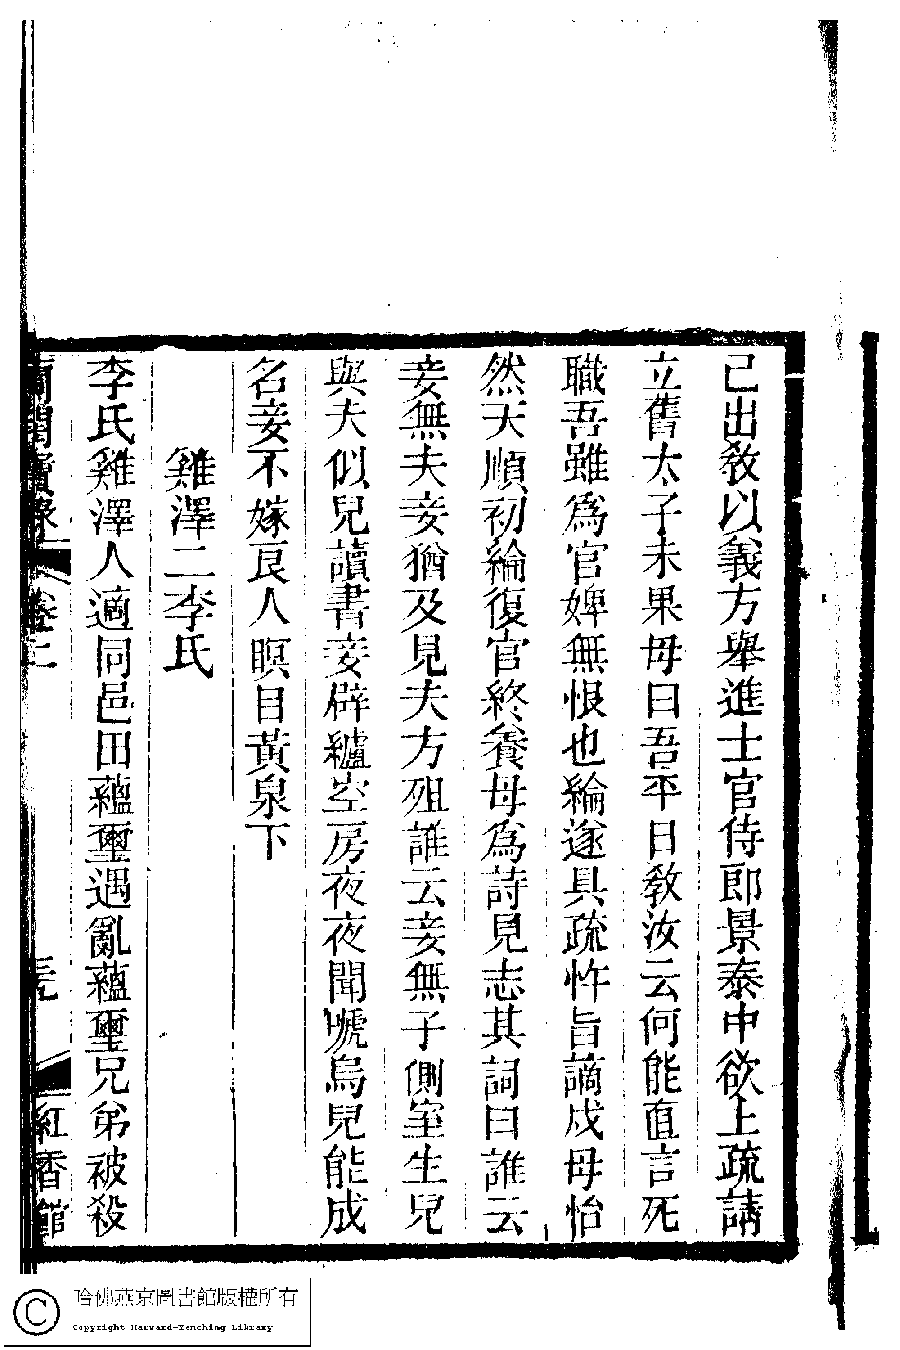 己出敎以義方舉進士官侍郎景泰中欲上疏請
立舊太子未果母曰吾平日敎汝云何能直言死
職吾雖爲官婢無恨也綸遂具疏忤旨謫戍母怡
然天順初綸復官終養母爲詩見志其詞曰誰云
妾無夫妾猶及見夫方殂誰云妾無子側室生兒
與夫似兒讀書妾辟纑空房夜夜聞號烏兒能成
名妾不嫁良人瞑目黃泉下
雞澤二李氏
李氏雞澤人適同邑田蘊璽遇亂蘊璽兄弟被殺
蘭閨寶錄 卷二 三九 紅香館
哈佛燕京圖書館版權所有
Copyright Harvard-Yenching Library